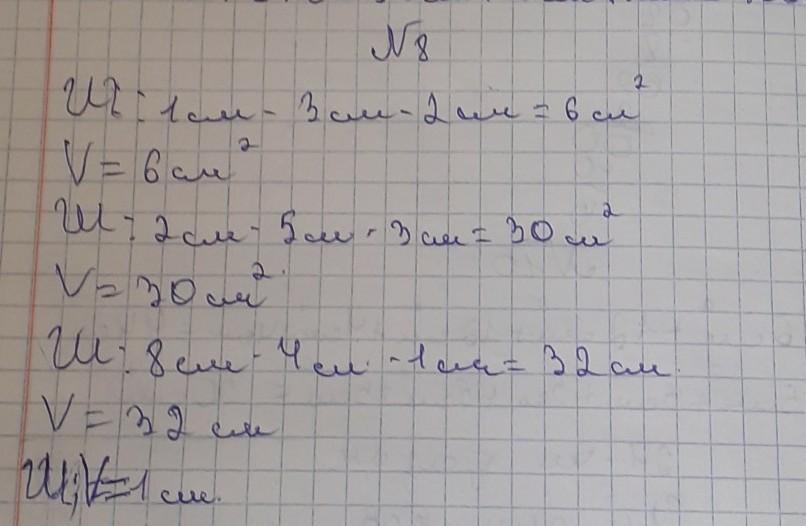 № 8
Ш: 1 см · 3 см · 2 см = 6 см²
V = 6 см²
Ш: 2 см · 5 см · 3 см = 30 см²
V = 30 см².
Ш: 8 см · 4 см · 1 см = 32 см.
V = 32 см
V = 1 см.